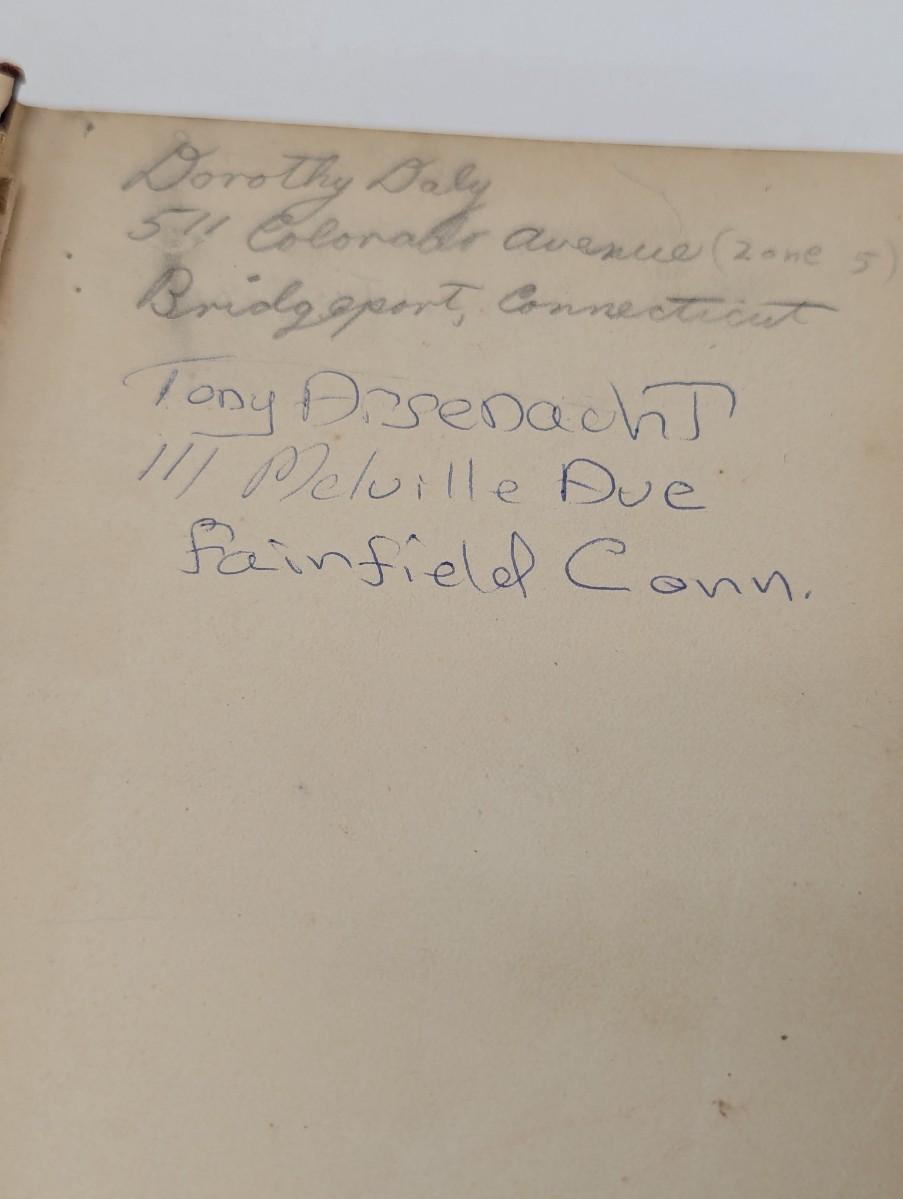 Dorothy Daly
511 Colorado Avenue (Zone 5)
Bridgeport, Connecticut
Tony
111 Melville Ave
Fairfield Conn.